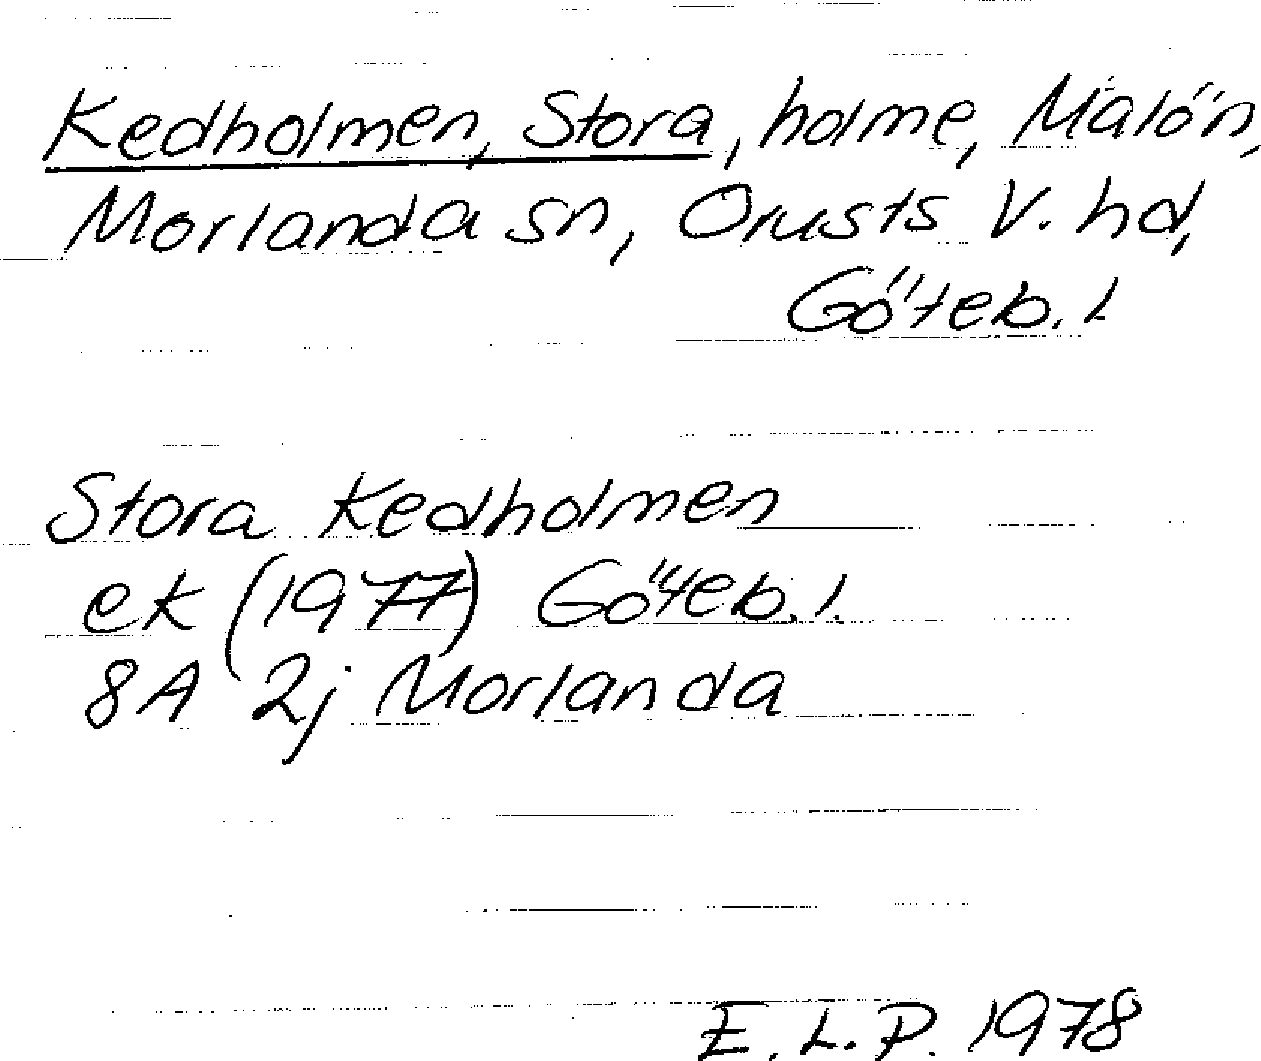 Kedholmen, Stora, holme, Malön,
Morlanda sn, Orusts V. hd,
Göteb. l.
Stora Kedholmen
ek (1977) Göteb. l.
8A 2j Morlanda
E. L. P. 1978